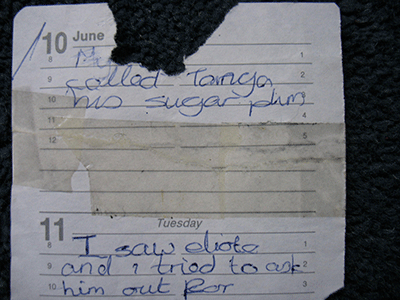 10 June
8 1
9 called Tanya 2
10 his sugar plum 3
11 4
12 5
11 Tuesday
8 I saw eliote 1
9 and i tried to ask 2
10 him out for 3